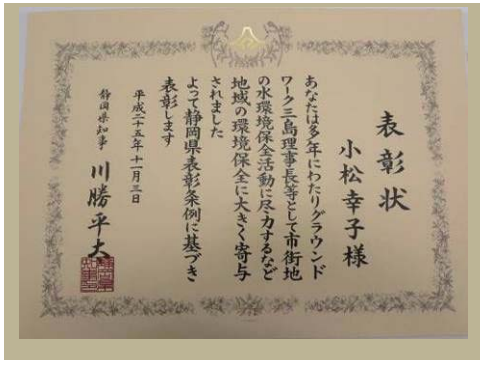 表彰状
小松幸子様
あなたは多年にわたりグラウンド
ワーク三島理事長等として市街地
の水環境保全活動に尽力するなど
地域の環境保全に大きく寄与
されました
よって静岡県表彰条例に基づき
表彰します
平成二十五年十一月三日
静岡県知事 川勝平太